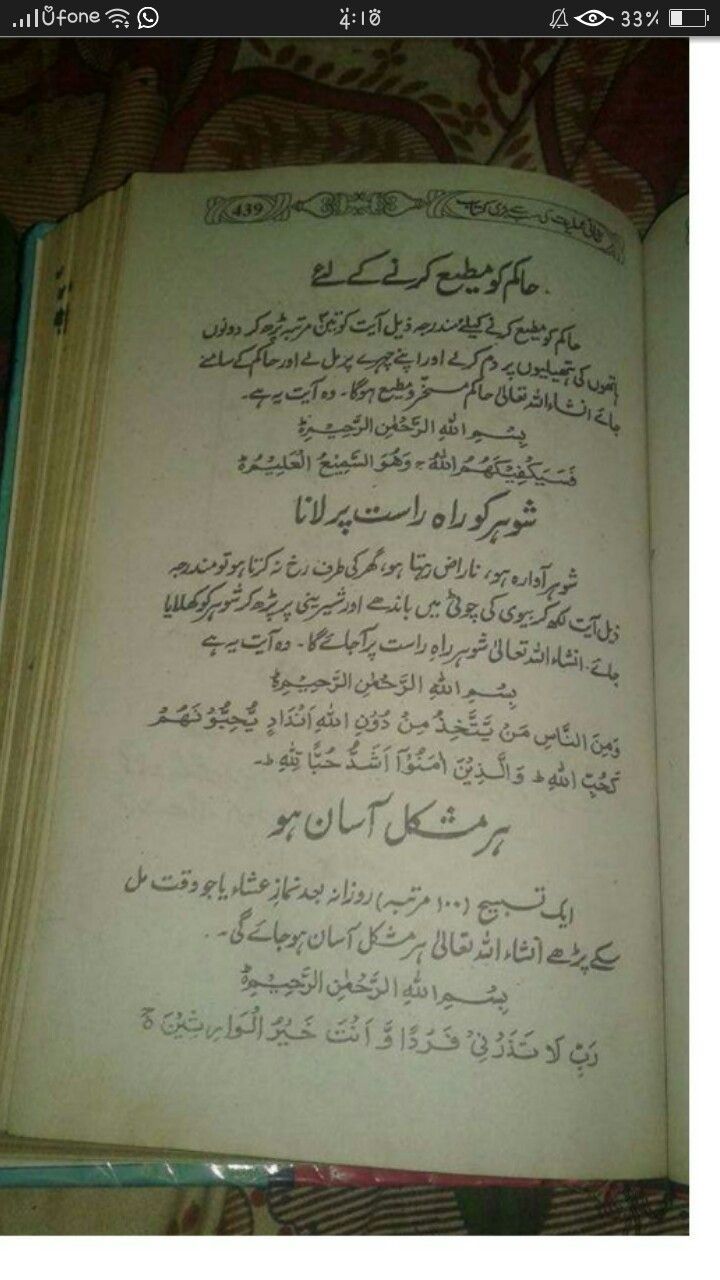 Ufone 4:10 33%
439 قرآنی عملیات کی سب سے بڑی کتاب
حاکم کو مطیع کرنے کے لئے
حاکم کو مطیع کرنے کیلئے مندرجہ ذیل آیت کو تین مرتبہ پڑھ کر دونوں
ہاتھوں کی ہتھیلیوں پر دم کرلے اور اپنے چہرے پر مل لے اور حاکم کے سامنے
جائے انشاء اللہ تعالیٰ حاکم مسخر و مطیع ہوگا۔ وہ آیت یہ ہے۔
بِسْمِ اللهِ الرَّحْمٰنِ الرَّحِيْمِ ط
فَسَيَكْفِيْكَهُمُ اللهُ ج وَهُوَ السَّمِيْعُ الْعَلِيْمُ ط
شوہر کو راہ راست پر لانا
شوہر آوارہ ہو، ناراض رہتا ہو، گھر کی طرف رخ نہ کرتا ہو تو مندرجہ
ذیل آیت لکھ کر بیوی کی چوٹی میں باندھے اور شیرینی پر پڑھ کر شوہر کو کھلایا
جائے۔ انشاء اللہ تعالیٰ شوہر راہِ راست پر آجائے گا۔ وہ آیت یہ ہے
بِسْمِ اللهِ الرَّحْمٰنِ الرَّحِيْمِ ط
وَمِنَ النَّاسِ مَنْ يَّتَّخِذُ مِنْ دُوْنِ اللهِ اَنْدَادٍ يُّحِبُّوْنَهُمْ
كَحُبِّ اللهِ ط وَالَّذِيْنَ اٰمَنُوْٓا اَشَدُّ حُبًّا لِّلّٰهِ ط۔
ہر مشکل آسان ہو
ایک تسبیح (۱۰۰ مرتبہ) روزانہ بعد نمازِ عشاء یا جو وقت مل
سکے پڑھے انشاء اللہ تعالیٰ ہر مشکل آسان ہوجائے گی۔
بِسْمِ اللهِ الرَّحْمٰنِ الرَّحِيْمِ ط
رَبِّ لَا تَذَرْنِيْ فَرْدًا وَّ اَنْتَ خَيْرُ الْوَارِثِيْنَ ة